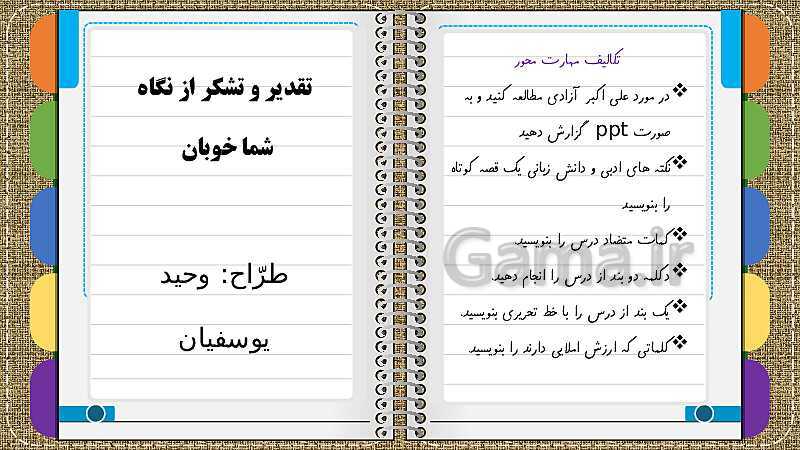 تکالیف مهارت محور
❖در مورد علی اکبر آزادی مطالعه کنید و به
صورت ppt گزارش دهید
❖نکته های ادبی و دانش زبانی یک قصه کوتاه
را بنویسید
❖کمات متضاد درس را بنویسید.
❖دکلمه دو بند از درس را انجام دهید.
❖یک بند از درس را با خط تحریری بنویسید.
❖کلماتی که ارزش املایی دارند را بنویسید.
تقدیر و تشکر از نگاه
شما خوبان
طرّاح: وحید
یوسفیان
Gama.ir